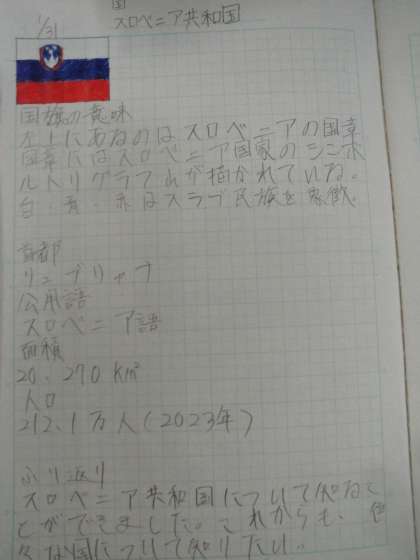 国
スロベニア共和国
1/31
国旗の意味
左上にあるのはスロベニアの国章
国章にはスロベニア国家のシンボ
ルトリグラフ山が描かれている。
白、青、赤はスラブ民族を象徴。
首都
リュブリャナ
公用語
スロベニア語
面積
20.270km²
人口
212.1万人(2023年)
ふり返り
スロベニア共和国について知るこ
とができました。これからも、色
々な国について知りたい。